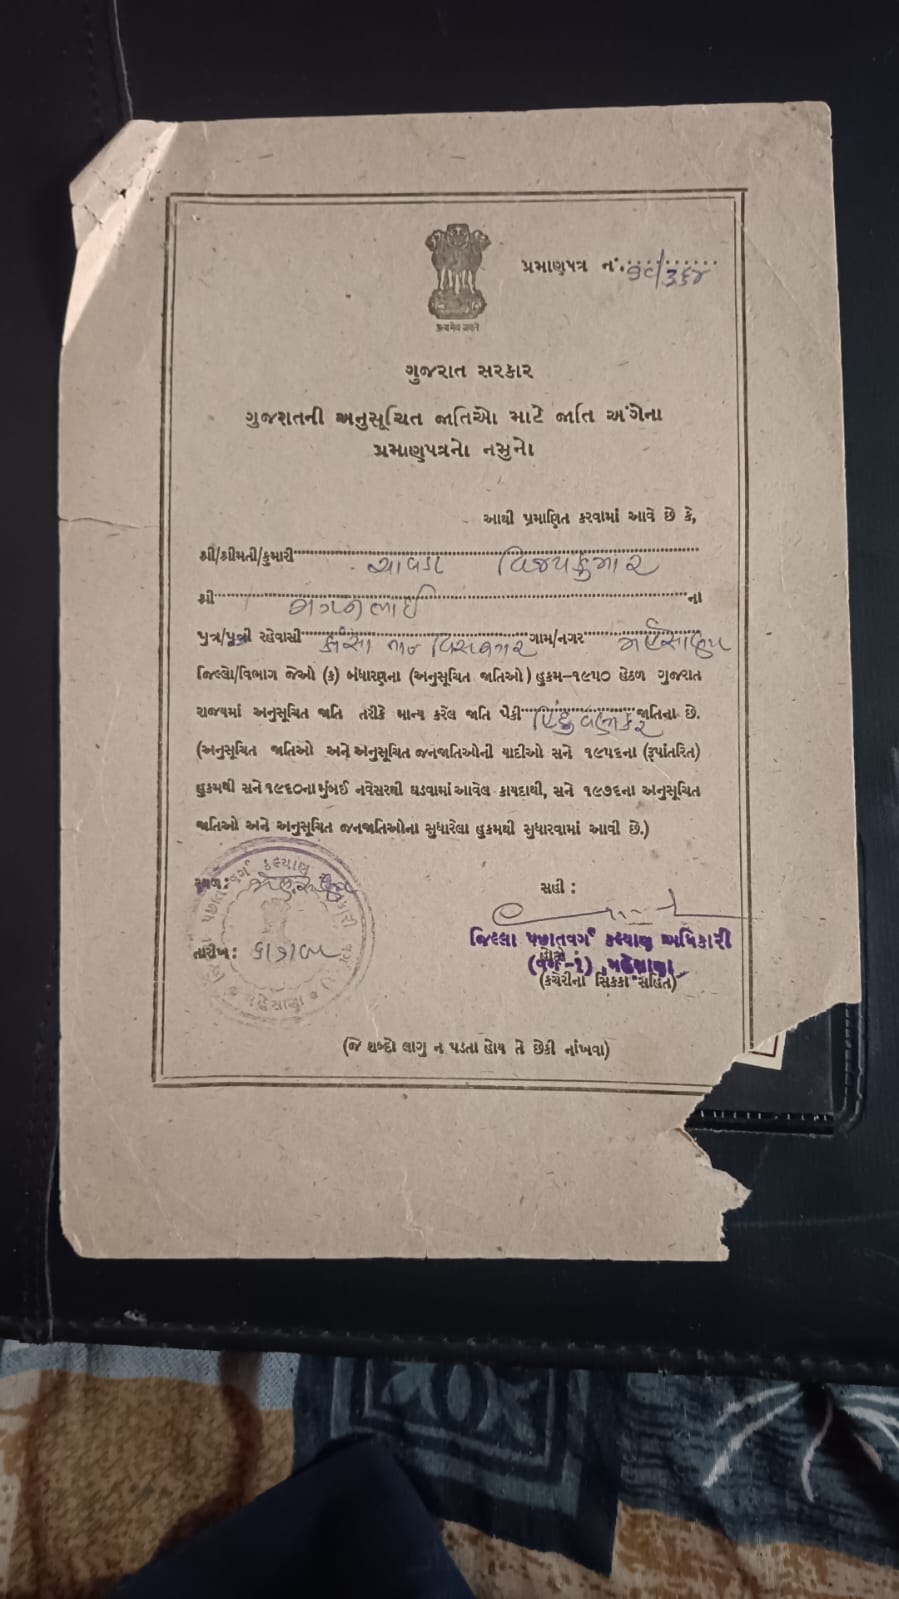 પ્રમાણપત્ર નં. ૭૮/૩૬૪
सत्यमेव जयते
ગુજરાત સરકાર
ગુજરાતની અનુસૂચિત જાતિઓ માટે જાતિ અંગેના
પ્રમાણપત્રનો નમુનો
આથી પ્રમાણિત કરવામાં આવે છે કે,
શ્રી/શ્રીમતી/કુમારી ચાવડા વિજયકુમાર
શ્રી મગનલાઈ ના
પુત્ર/પુત્રી રહેવાસી કાંસા તા વિસનગર ગામ/નગર મહેસાણા
જિલ્લો/વિભાગ જેઓ (ક) બંધારણના (અનુસૂચિત જાતિઓ) હુકમ-૧૯૫૦ હેઠળ ગુજરાત
રાજ્યમાં અનુસૂચિત જાતિ તરીકે માન્ય કરેલ જાતિ પૈકી હિંદુ વણકર જાતિના છે.
(અનુસૂચિત જાતિઓ અને અનુસૂચિત જનજાતિઓની યાદીઓ સને ૧૯૫૬ના (રૂપાંતરિત)
હુકમથી સને ૧૯૬૦ના મુંબઈ નવેસરથી ઘડવામાં આવેલ કાયદાથી, સને ૧૯૭૬ના અનુસૂચિત
જાતિઓ અને અનુસૂચિત જનજાતિઓના સુધારેલા હુકમથી સુધારવામાં આવી છે.)
સ્થળ: મહેસાણા
સહી :
જિલ્લા પછાતવર્ગ કલ્યાણ અધિકારી
તારીખ:
(વર્ગ-૧) મહેસાણા
(કચેરીના સિક્કા સહિત)
(જે શબ્દો લાગુ ન પડતા હોય તે છેકી નાંખવા)